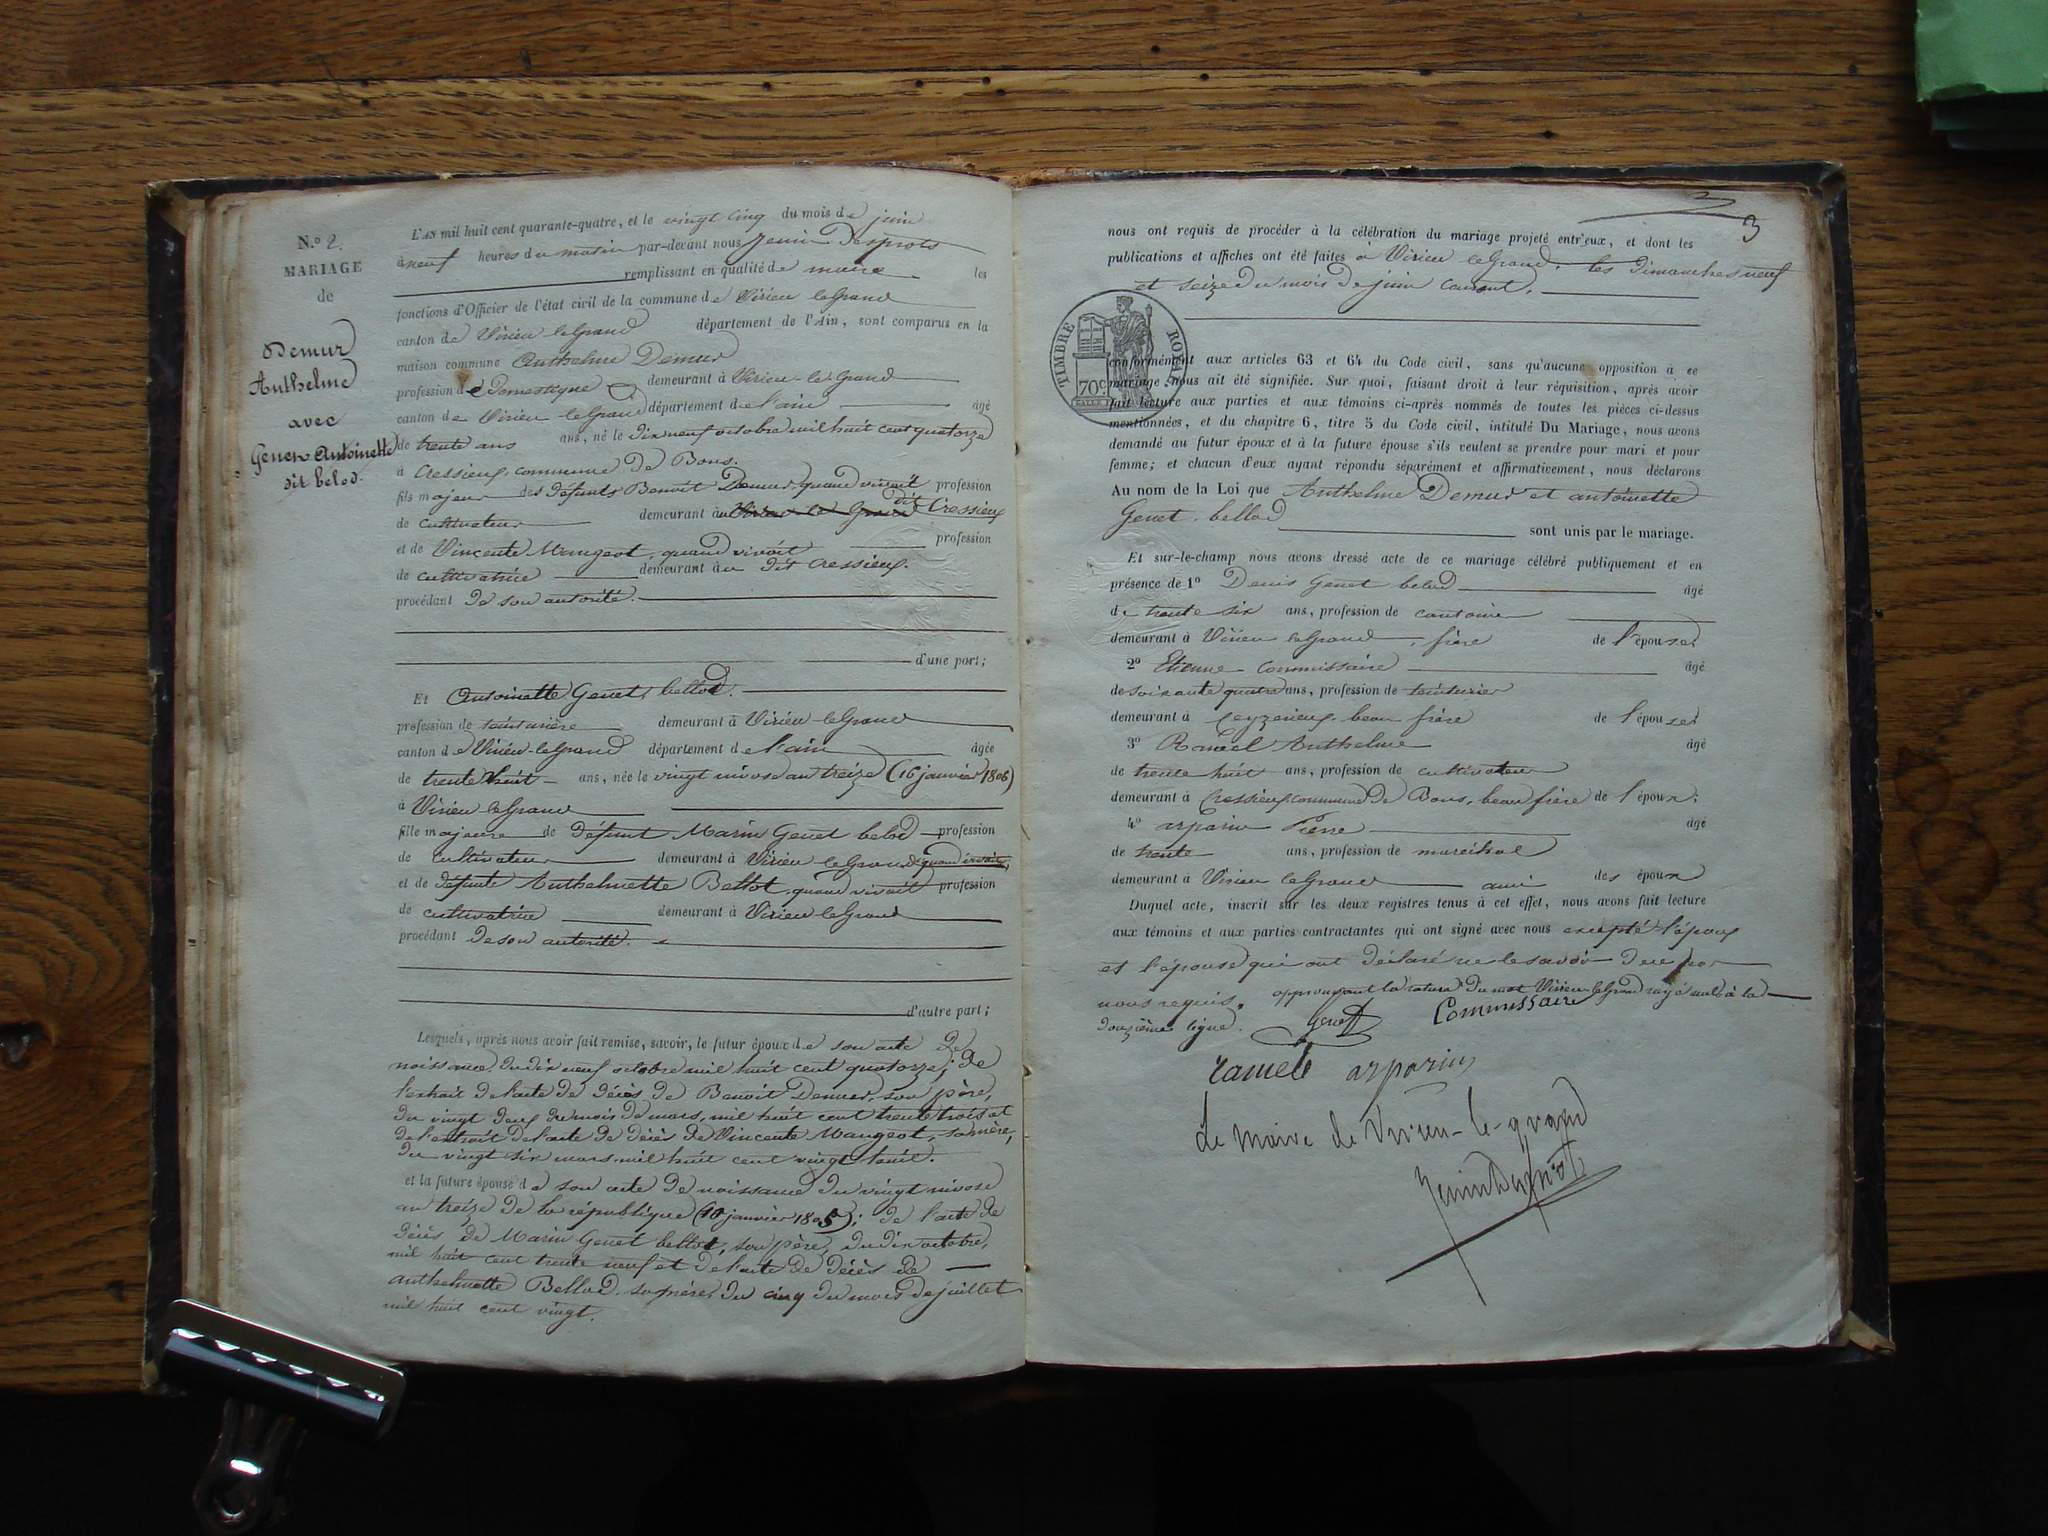 N.º 2.
MARIAGE
de
Demur
Anthelme
avec
Genet Antoinette
dit belod.
L'AN mil huit cent quarante-quatre, et le vingt cinq du mois de juin
à neuf heures du matin par-devant nous Jenin Desprots
remplissant en qualité de maire les
fonctions d'Officier de l'état civil de la commune de Virieu le Grand
canton de Virieu le Grand département de l'Ain, sont comparus en la
maison commune Anthelme Demur
profession de Domestique demeurant à Virieu-le-Grand
canton de Virieu le Grand département de l'ain âgé
de trente ans ans, né le dix neuf octobre mil huit cent quatorze
à Cressieux, commune de Bons.
fils majeur des défunts Benoit Demur, quand vivait profession
de cultivateur demeurant à Virieu le Grand dit Cressieux
et de Vincente Maugeot, quand vivait profession
de cultivatrice demeurant au dit Cressieux.
procédant de son autorité.
d'une part;
Et Antoinette Genet, bellod.
profession de teinturière demeurant à Virieu-le-Grand
canton de Virieu-le-Grand département de l'ain âgée
de trente huit ans, née le vingt nivose an treize (16 janvier 1806)
à Virieu le Grand
fille majeure de défunt Marin Genet belod profession
de cultivateur demeurant à Virieu le Grand quand vivait,
et de défunte Anthelmette Bellot, quand vivait profession
de cultivatrice demeurant à Virieu-le-Grand
procédant de son autorité.
d'autre part;
Lesquels, après nous avoir fait remise, savoir, le futur époux de son acte de
naissance, du dix neuf octobre mil huit cent quatorze; de
l'extrait de l'acte de décès de Benoit Demur, son père,
du vingt deux du mois de mars, mil huit cent trente trois et
de l'extrait de l'acte de décès de Vincente Maugeot, sa mère,
du vingt six mars mil huit cent vingt huit.
et la future épouse de son acte de naissance du vingt nivose
an treize de la république (10 janvier 1805); de l'acte de
décès de Marin Genet bellot, son père, du dix octobre,
mil huit cent trente neuf et de l'acte de décès de
anthelmette Bellod, sa mère, du cinq du mois de juillet
mil huit cent vingt.
3
nous ont requis de procéder à la célébration du mariage projeté entr'eux, et dont les
publications et affiches ont été faites à Virieu le Grand, les dimanches neuf
et seize du mois de juin courant.
TIMBRE ROYAL
70c.
conformément aux articles 63 et 64 du Code civil, sans qu'aucune opposition à ce
mariage nous ait été signifiée. Sur quoi, faisant droit à leur réquisition, après avoir
fait lecture aux parties et aux témoins ci-après nommés de toutes les pièces ci-dessus
mentionnées, et du chapitre 6, titre 5 du Code civil, intitulé Du Mariage, nous avons
demandé au futur époux et à la future épouse s'ils veulent se prendre pour mari et pour
femme; et chacun d'eux ayant répondu séparément et affirmativement, nous déclarons
Au nom de la Loi que Anthelme Demur et antoinette
Genet, bellod
sont unis par le mariage.
Et sur-le-champ nous avons dressé acte de ce mariage célébré publiquement et en
présence de 1º Denis Genet belod âgé
de trente six ans, profession de
demeurant à Virieu le Grand, frère de l'épouse
2º Etienne Commissaire âgé
de soixante quatre ans, profession de teinturier
demeurant à Ceyzerieux, beau frère de l'épouse
3º Ramel Anthelme âgé
de trente huit ans, profession de cultivateur
demeurant à Cressieux commune de Bons, beau frère de l'époux;
4º arparin Pierre âgé
de trente ans, profession de maréchal
demeurant à Virieu le Grand ami des époux
Duquel acte, inscrit sur les deux registres tenus à cet effet, nous avons fait lecture
aux témoins et aux parties contractantes qui ont signé avec nous excepté l'époux
et l'épouse qui ont déclaré ne le savoir de ce par
nous requis. approuvant la rature du mot Virieu le Grand rayé nul à la
douzième ligne. Genet Commissaire
ramele arparin
Le maire de Virieu-le-grand
Jenin Desprots